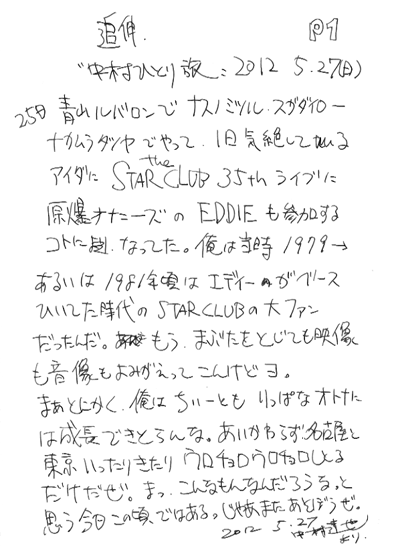 追伸. P1
"中村ひとり旅" 2012 5.27(日)
25日 青山ルバロンで ナスノミツル. スガダイロー
ナカムラタツヤ でやって. 1日気絶してる
アイダに the STAR CLUB 35th ライブに
原爆オナニーズの EDDIE も参加する
コトに なってた。俺は当時 1979→
あるいは 1981年頃は エディーがベース
ひいてた時代の STAR CLUBの大ファン
だったんだ。もう. まぶたをとじても映像
も音像もよみがえってこんけどヨ。
まぁとにかく. 俺は ちぃーとも りっぱなオトナに
は成長できとらんな。あいかわらず名古屋と
東京いったりきたり ウロチョロウロチョロしとる
だけだぜ。まっ. こんなもんなんだろうなっと
思う今日この頃. ではあるっ。じゃあ. またあとぼうぜ。
2012 5.27
中村達也
より.